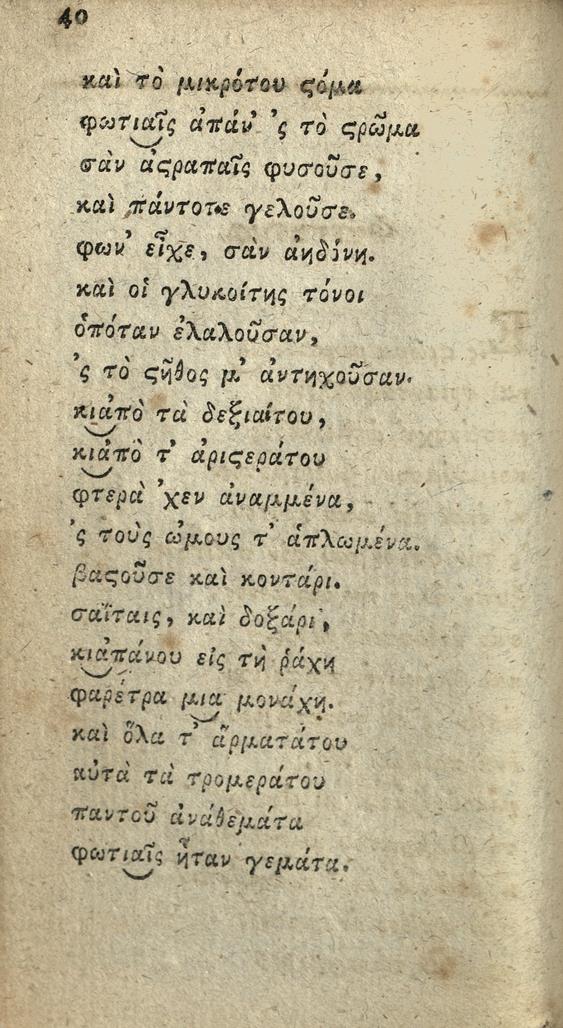 40
καὶ τὸ μικρότου ϛόμα
φωτιαῖς ἀπάν' 'ς τὸ ϛρῶμα
σὰν ἀϛραπαῖς φυσοῦσε,
καὶ πάντοτε γελοῦσε.
φων' εἶχε, σὰν ἀηδόνη.
καὶ οἱ γλυκοίτης τόνοι
ὁπόταν ἐλαλοῦσαν,
'ς τὸ ϛῆθος μ' ἀντηχοῦσαν.
κι͜ἀπὸ τὰ δεξιαίτου,
κι͜ἀπὸ τ' ἀριϛεράτου
φτερὰ 'χεν ἀναμμένα,
'ς τοὺς ὤμους τ' ἁπλωμένα.
βαϛοῦσε καὶ κοντάρι.
σαΐταις, καὶ δοξάρι,
κι͜ἀπάνου εἰς τὴ ῥάχη
φαρέτρα μι͜α μονάχη.
καὶ ὅλα τ' ἄρματάτου
αὐτὰ τὰ τρομεράτου
παντοῦ ἀνάθεμάτα
φωτι͜αῖς ἦταν γεμάτα.